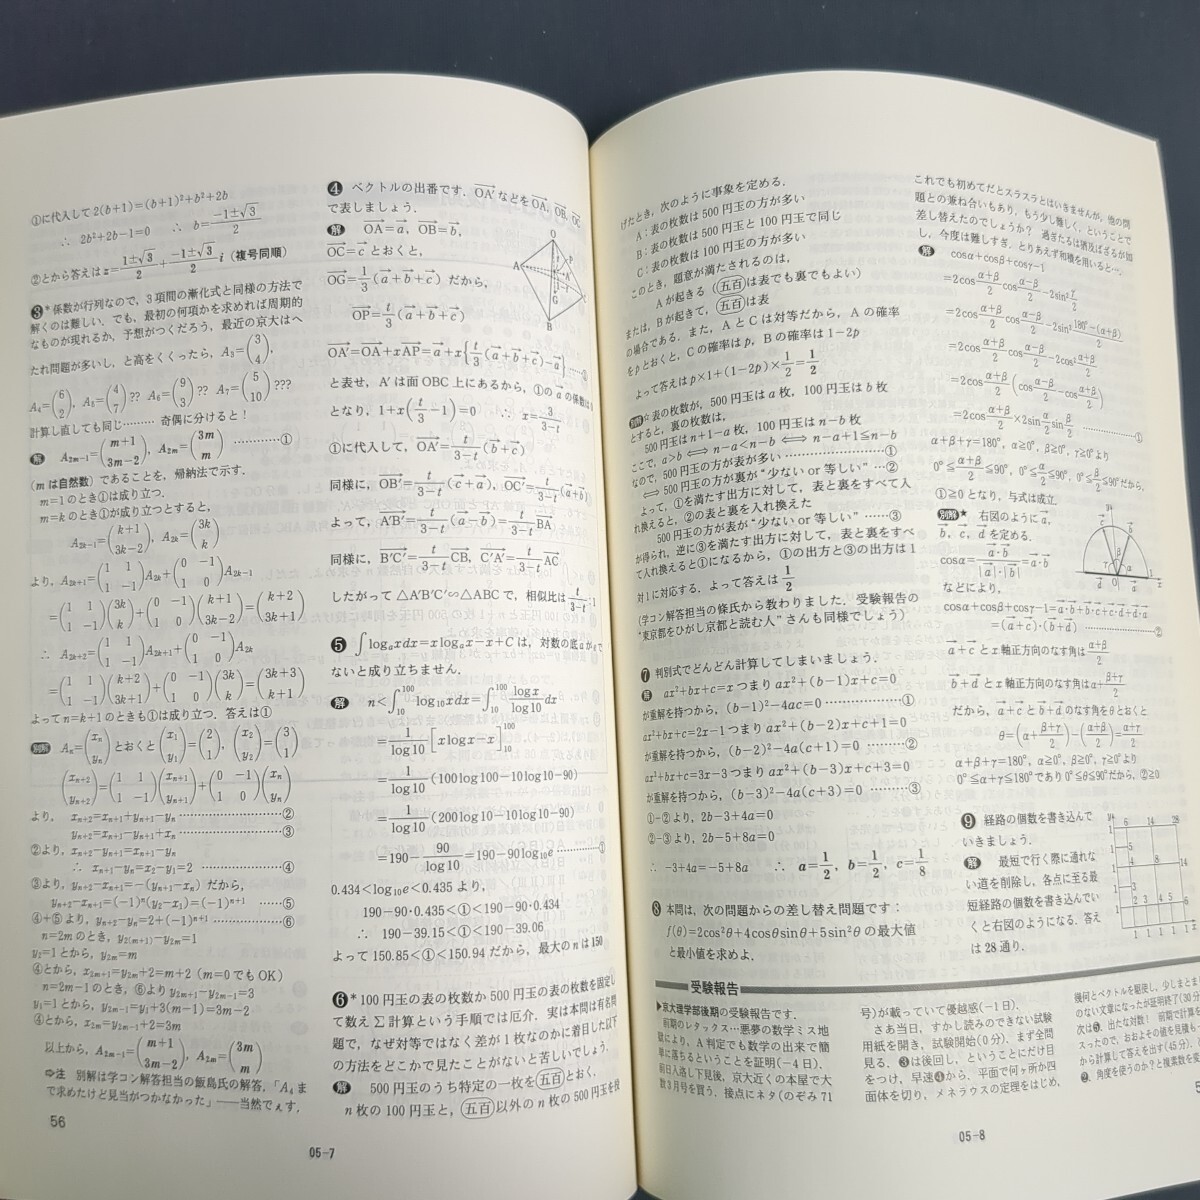 ①に代入して 2(b+1)=(b+1)²+b²+2b
∴ 2b²+2b−1=0 ∴ b=(−1±√3)/2
②とから答えは z=(1±√3)/2+(−1±√3)/2 i (複号同順)
❸*係数が行列なので，3項間の漸化式と同様の方法で
解くのは難しい．でも，最初の何項かを求めれば周期的
なものが現れるか，予想がつくだろう，最近の京大はへ
たれ問題が多いし，と高をくくったら，A₃=(3 4),
A₄=(6 2), A₅=(4 7)?? A₆=(9 3)?? A₇=(5 10)???
計算し直しても同じ……… 奇偶に分けると！
解 A₂ₘ₋₁=(m+1 3m−2), A₂ₘ=(3m m) …………①
(mは自然数)であることを，帰納法で示す．
m=1のとき①は成り立つ．
m=kのとき①が成り立つとすると，
A₂ₖ₋₁=(k+1 3k−2), A₂ₖ=(3k k)
より，A₂ₖ₊₁=(1 1 1 −1)A₂ₖ+(0 −1 1 0)A₂ₖ₋₁
=(1 1 1 −1)(3k k)+(0 −1 1 0)(k+1 3k−2)=(k+2 3k+1)
∴ A₂ₖ₊₂=(1 1 1 −1)A₂ₖ₊₁+(0 −1 1 0)A₂ₖ
=(1 1 1 −1)(k+2 3k+1)+(0 −1 1 0)(3k k)=(3k+3 k+1)
よってn=k+1のときも①は成り立つ．答えは①
別解 Aₙ=(xₙ yₙ)とおくと(x₁ y₁)=(2 1), (x₂ y₂)=(3 1)
(xₙ₊₂ yₙ₊₂)=(1 1 1 −1)(xₙ₊₁ yₙ₊₁)+(0 −1 1 0)(xₙ yₙ)
より，xₙ₊₂=xₙ₊₁+yₙ₊₁−yₙ ……………………②
yₙ₊₂=xₙ₊₁−yₙ₊₁+xₙ ……………………③
②より，xₙ₊₂−yₙ₊₁=xₙ₊₁−yₙ
∴ xₙ₊₁−yₙ=x₂−y₁=2 …………………④
③より，yₙ₊₂−xₙ₊₁=−(yₙ₊₁−xₙ)だから，
yₙ₊₂−xₙ₊₁=(−1)ⁿ(y₂−x₁)=(−1)ⁿ⁺¹ ……⑤
④+⑤より，yₙ₊₂−yₙ=2+(−1)ⁿ⁺¹ ……………⑥
n=2mのとき，y₂₍ₘ₊₁₎−y₂ₘ=1
y₂=1とから，y₂ₘ=m
④とから，x₂ₘ₊₁=y₂ₘ+2=m+2 (m=0でもOK)
n=2m−1のとき，⑥よりy₂ₘ₊₁−y₂ₘ₋₁=3
y₁=1とから，y₂ₘ₋₁=y₁+3(m−1)=3m−2
④とから，x₂ₘ=y₂ₘ₋₁+2=3m
以上から，A₂ₘ₋₁=(m+1 3m−2), A₂ₘ=(3m m)
⇨注 別解は学コン解答担当の飯島氏の解答．「A₄ま
で求めたけど見当がつかなかった」――当然でぇす．
56
05-7
❹ ベクトルの出番です．OA′などをOA, OB, OC
で表しましょう．
解 OA=a, OB=b,
OC=cとおくと，
OG=1/3(a+b+c)だから，
OP=t/3(a+b+c)
OA′=OA+xAP=a+x{t/3(a+b+c)−a} ……①
と表せ，A′は面OBC上にあるから，①のaの係数は0
となり，1+x(t/3−1)=0 ∴ x=3/(3−t)
①に代入して，OA′=t/(3−t)(b+c)
同様に，OB′=t/(3−t)(c+a), OC′=t/(3−t)(a+b)
よって，A′B′=t/(3−t)(a−b)=t/(3−t)BA
同様に，B′C′=t/(3−t)CB, C′A′=t/(3−t)AC
したがって△A′B′C′∽△ABCで，相似比は t/(3−t):1
❺ ∫logₐxdx=xlogₐx−x+Cは，対数の底aがeで
ないと成り立ちません．
解 n<∫₁₀¹⁰⁰log₁₀xdx=∫₁₀¹⁰⁰ logx/log10 dx
=1/log10 [xlogx−x]₁₀¹⁰⁰
=1/log10 (100log100−10log10−90)
=1/log10 (200log10−10log10−90)
=190−90/log10=190−90log₁₀e …………①
0.434<log₁₀e<0.435より，
190−90·0.435<①<190−90·0.434
∴ 190−39.15<①<190−39.06
よって150.85<①<150.94だから，最大のnは150
❻*100円玉の表の枚数か500円玉の表の枚数を固定し
て数えΣ計算という手順では厄介．実は本問は有名問
題で，なぜ対等ではなく差が1枚なのかに着目した以下
の方法をどこかで見たことがないと苦しいでしょう．
解 500円玉のうち特定の一枚を(五百)とおく．
n枚の100円玉と，(五百)以外のn枚の500円玉を投
げたとき，次のように事象を定める．
A：表の枚数は500円玉の方が多い
B：表の枚数は500円玉と100円玉で同じ
C：表の枚数は100円玉の方が多い
このとき，題意が満たされるのは，
Aが起きる((五百)は表でも裏でもよい)
または，Bが起きて，(五百)は表
の場合である．また，AとCは対等だから，Aの確率
をpとおくと，Cの確率はp，Bの確率は1−2p
よって答えは p×1+(1−2p)×1/2=1/2
別解 表の枚数が，500円玉はa枚，100円玉はb枚
とすると，裏の枚数は，
500円玉はn+1−a枚，100円玉はn−b枚
ここで，a>b⟺n−a<n−b⟺n−a+1≦n−b
なので，500円玉の方が表が多い ……………………①
⟺500円玉の方が裏が“少ないor等しい” …②
よって，①を満たす出方に対して，表と裏をすべて入
れ換えると，②の表と裏を入れ換えた
500円玉の方が表が“少ないor等しい” ……③
が得られ，逆に③を満たす出方に対して，表と裏をすべ
て入れ換えると①になるから，①の出方と③の出方は1
対1に対応する．よって答えは1/2
(学コン解答担当の條氏から教わりました．受験報告の
“東京都をひがし京都と読む人”さんも同様でしょう)
❼ 判別式でどんどん計算してしまいましょう．
解 ax²+bx+c=x つまり ax²+(b−1)x+c=0
が重解を持つから，(b−1)²−4ac=0 …………………①
ax²+bx+c=2x−1 つまり ax²+(b−2)x+c+1=0
が重解を持つから，(b−2)²−4a(c+1)=0 ………②
ax²+bx+c=3x−3 つまり ax²+(b−3)x+c+3=0
が重解を持つから，(b−3)²−4a(c+3)=0 ………③
①−②より，2b−3+4a=0
②−③より，2b−5+8a=0
∴ −3+4a=−5+8a ∴ a=1/2, b=1/2, c=1/8
❽ 本問は，次の問題からの差し替え問題です：
f(θ)=2cos²θ+4cosθsinθ+5sin²θの最大値
と最小値を求めよ．
これでも初めてだとスラスラとはいきませんが，他の問
題との兼ね合いもあり，もう少し難しく，ということで
差し替えたのでしょうか？ 過ぎたるは猶及ばざるが如
し，今度は難しすぎ．とりあえず和積を用いると…．
解 cosα+cosβ+cosγ−1
=2cos (α+β)/2 cos (α−β)/2 −2sin² γ/2
=2cos (α+β)/2 cos (α−β)/2 −2sin² (180°−(α+β))/2
=2cos (α+β)/2 cos (α−β)/2 −2cos² (α+β)/2
=2cos (α+β)/2 (cos (α−β)/2 −cos (α+β)/2)
=2cos (α+β)/2 ×2sin α/2 sin β/2 ……………①
α+β+γ=180°, α≧0°, β≧0°, γ≧0°より
0°≦(α+β)/2≦90°, 0°≦α/2≦90°, 0°≦β/2≦90°だから，
①≧0となり，与式は成立．
別解★ 右図のようにa,
b, c, dを定める．
cosα=a·b/|a|·|b|=a·b
などにより，
cosα+cosβ+cosγ−1=a·b+b·c+c·d+d·a
=(a+c)·(b+d) ……………②
a+cとx軸正方向のなす角は(α+β)/2
b+dとx軸正方向のなす角はα+(β+γ)/2
だから，a+cとb+dのなす角をθとおくと
θ=(α+(β+γ)/2)−((α+β)/2)=(α+γ)/2
α+β+γ=180°, α≧0°, β≧0°, γ≧0°より
0°≦α+γ≦180°であり0°≦θ≦90°だから，②≧0
❾ 経路の個数を書き込んで
いきましょう．
解 最短で行く際に通れな
い道を削除し，各点に至る最
短経路の個数を書き込んでい
くと右図のようになる．答え
は28通り．
受験報告
▶京大理学部後期の受験報告です．
前期のレタックス…悪夢の数学ミス地
獄により，A判定でも数学の出来で簡
単に落ちるということを証明(−4日)．
前日入洛し下見後，京大近くの本屋で大
数3月号を買う．接点にネタ(のぞみ71
号)が載っていて優越感(−1日)．
さあ当日，すかし読みのできない試験
用紙を開き，試験開始(0分)．まず全問
見る．❸は後回し，ということにだけ目
をつけ，早速❹から．平面で何ヶ所か四
面体を切り，メネラウスの定理をはじめ，
幾何とベクトルを駆使し，少しまとま
のない文章になったが証明終了(30分
次は❺，出たな対数！ 前期で計算を
スったので，おおよその値を見積も
から計算して答えを出す(45分)．
❷，角度を使うのか？と複素数を変
05-8